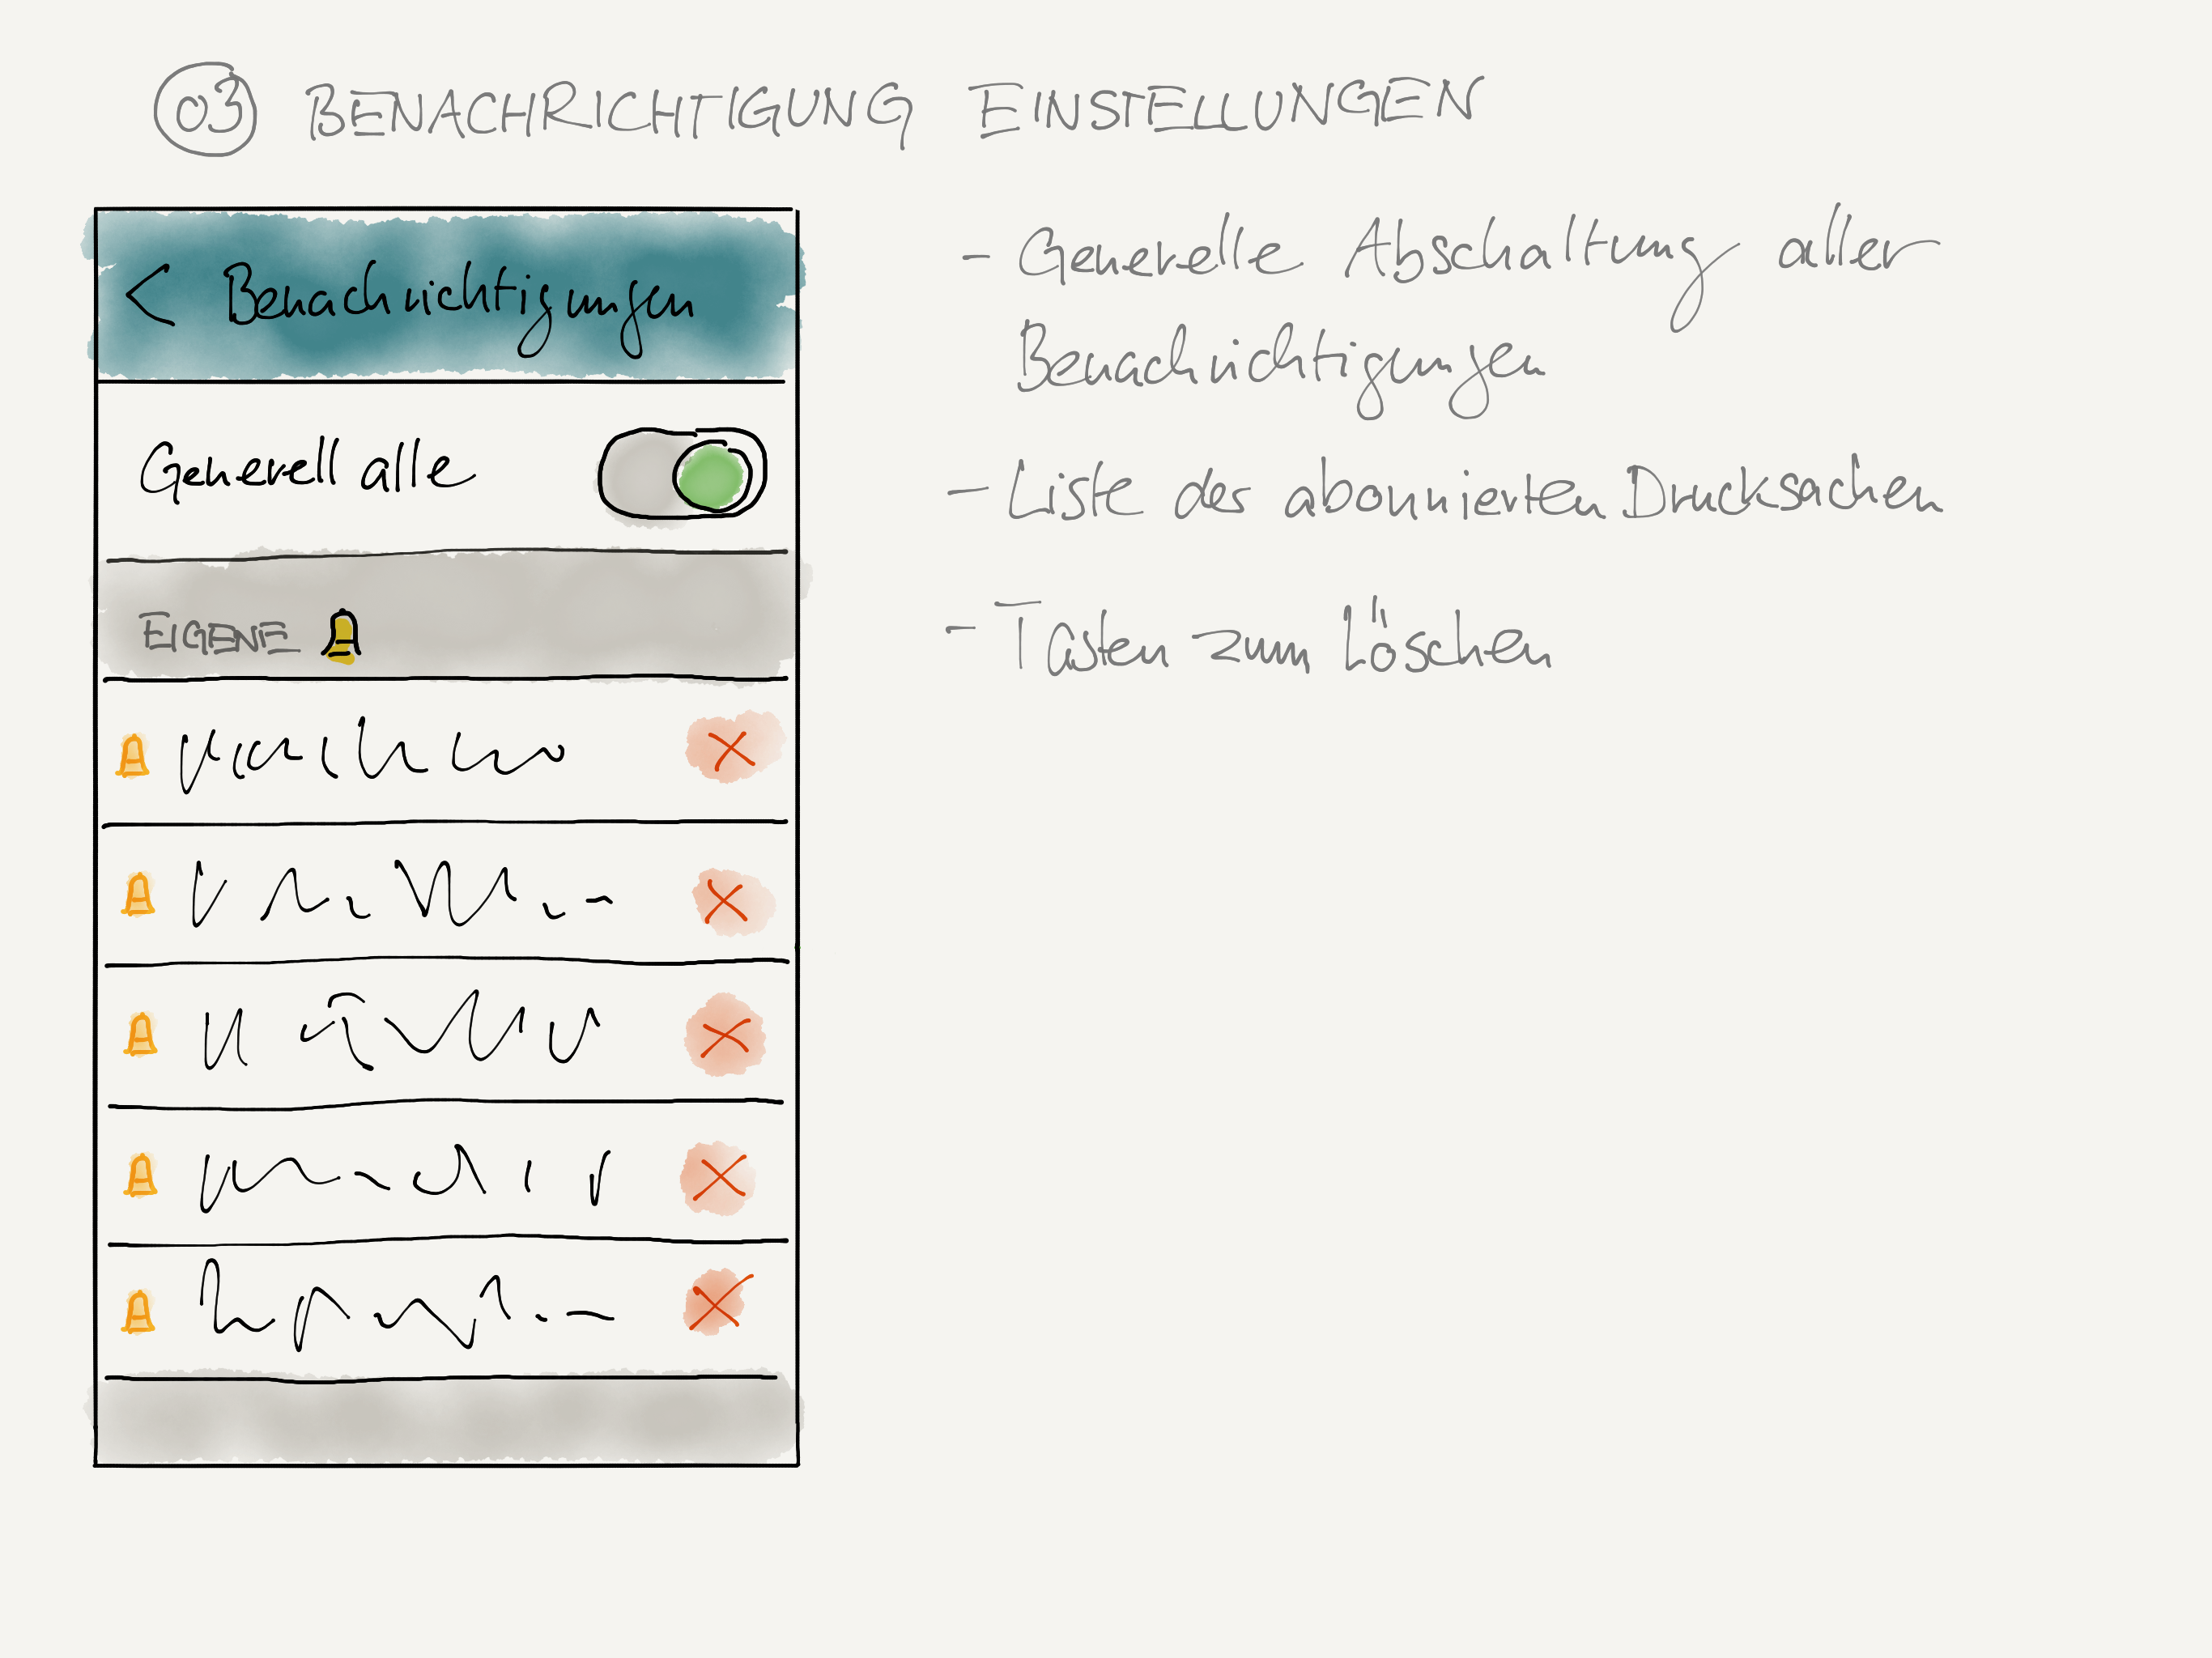 03 BENACHRICHTIGUNG EINSTELLUNGEN
< Benachrichtigungen
Generell alle
EIGENE
- Generelle Abschaltung aller
Benachrichtigungen
- Liste der abonnierten Drucksachen
- Tasten zum Löschen